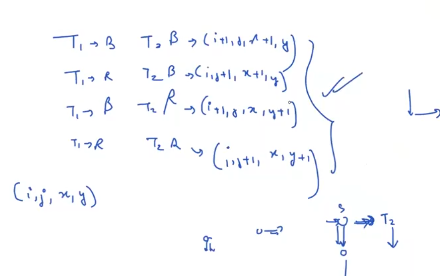 T₁→B T₂ B → (i+1, j, x+1, y)
T₁→R T₂ B → (i, j+1, x+1, y)
T₁→B T₂ R → (i+1, j, x, y+1)
T₁→R T₂ R → (i, j+1, x, y+1)
(i, j, x, y)
T₂